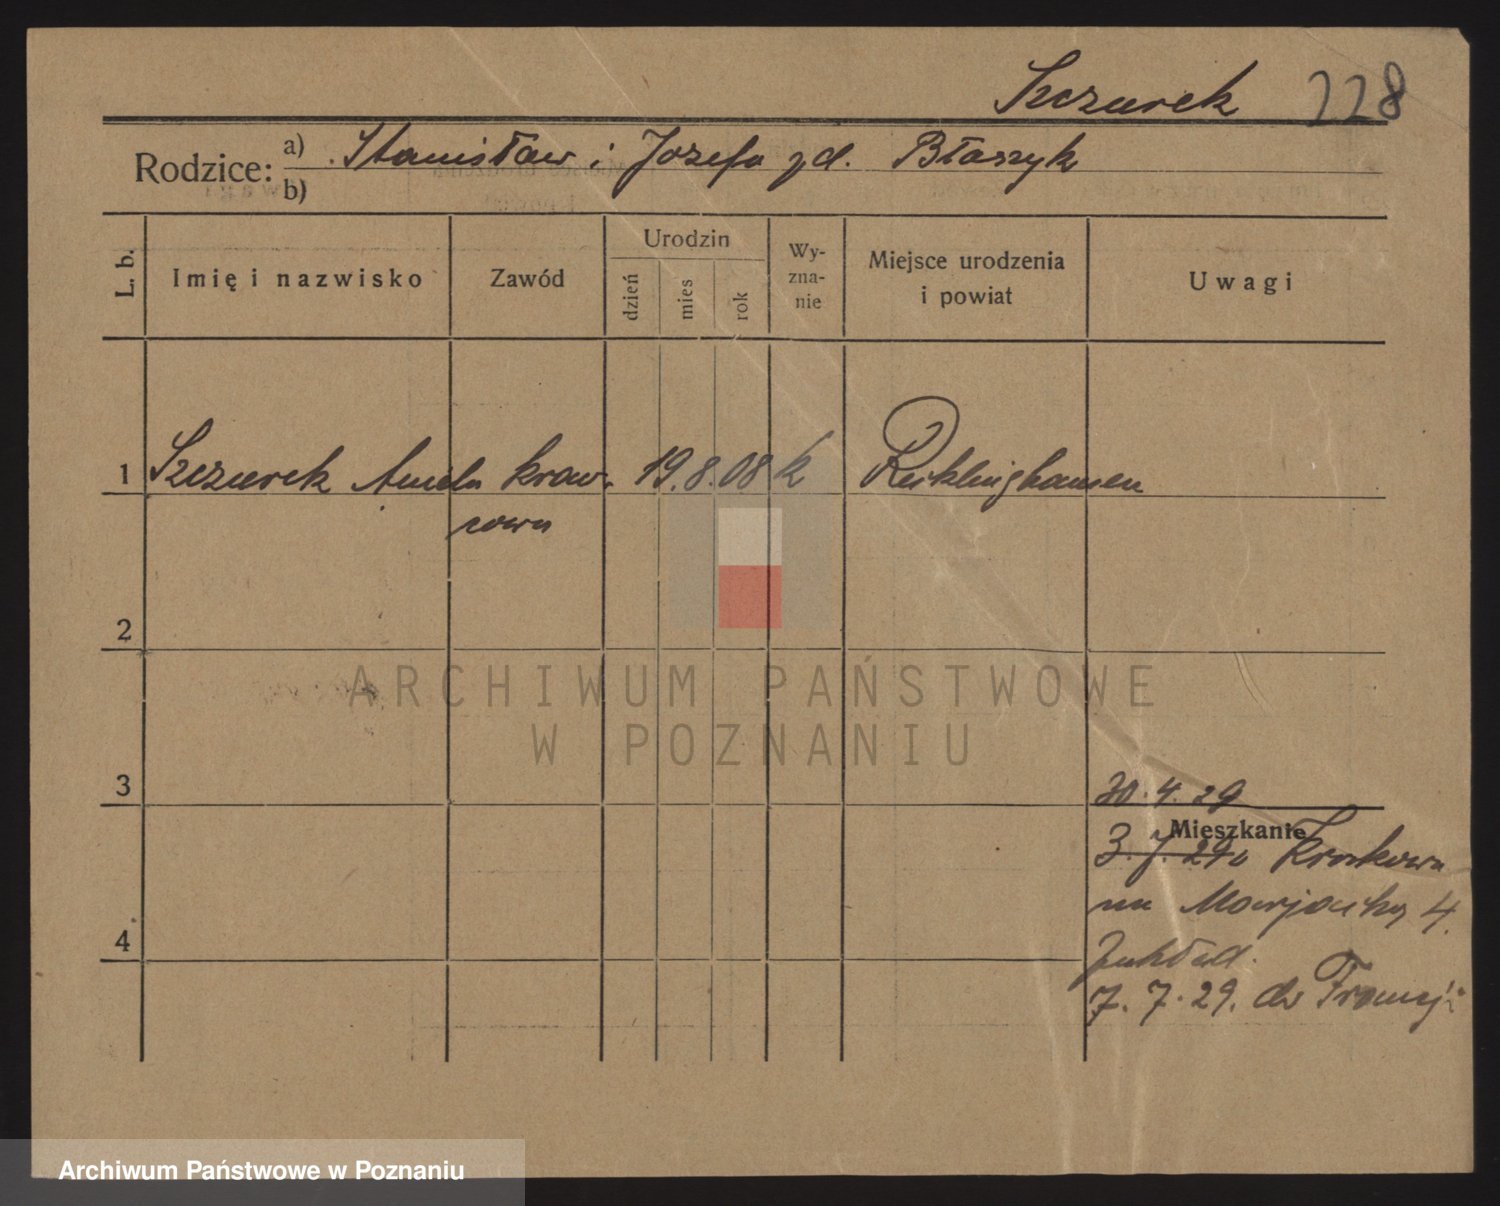 Szczurek 228
Rodzice: a) Stanisław i Józefa zd. Błaszyk
b)
L. b. Imię i nazwisko Zawód Urodzin dzień mies rok Wy-zna-nie Miejsce urodzenia i powiat Uwagi
1 Szczurek Aniela kraw- 19. 8. 08 k Recklinghausen
cowa
2
ARCHIWUM PAŃSTWOWE
W POZNANIU
3 30. 4. 29
Mieszkanie
3. 7. 29 Krakowa
na 4.
4
7. 7. 29. do Francji
Archiwum Państwowe w Poznaniu